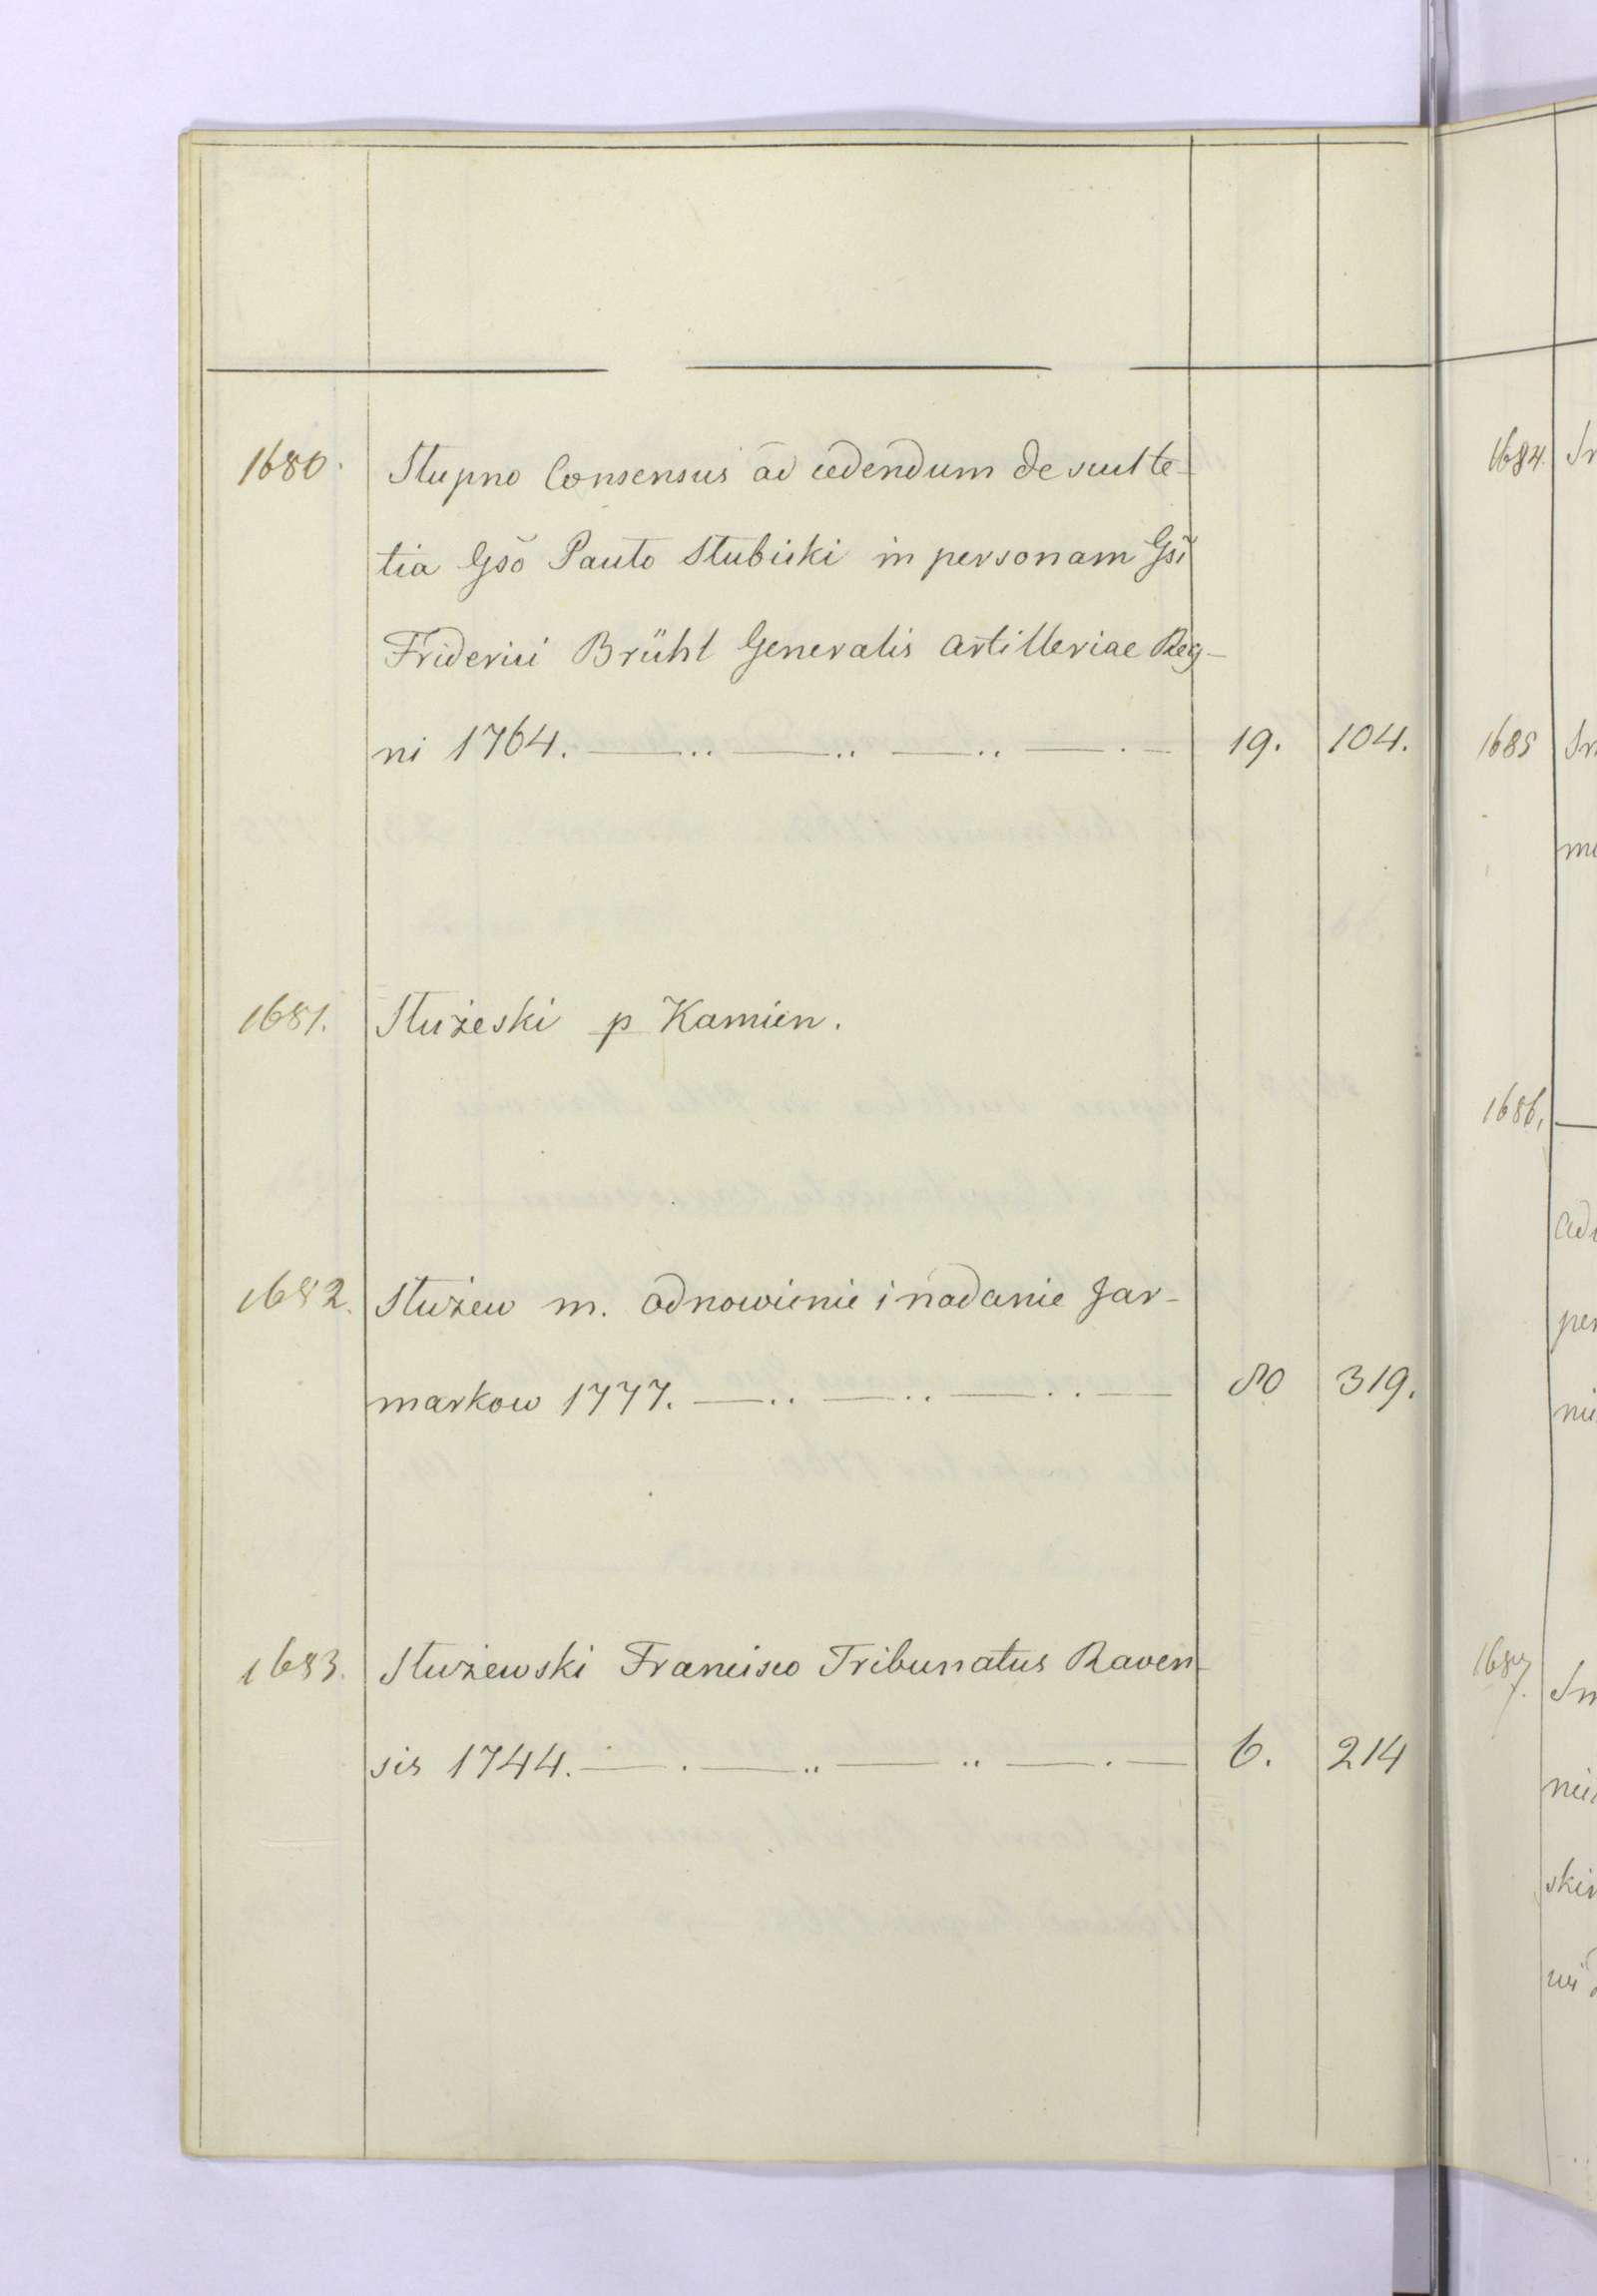 1680. Słupno Consensus ad cedendum de sculte-
tia Gso Paulo Słubicki in personam Gsi
Friderici Brühl Generalis artilleriae Reg-
ni 1764. 19. 104.
1681. Służeski p Kamien.
1682. Służew m. odnowienie i nadanie Jar-
markow 1777. 80 319.
1683. Służewski Francisco Tribunatus Raven-
sis 1744. 6. 214
1684.
1685
1686.
1687.